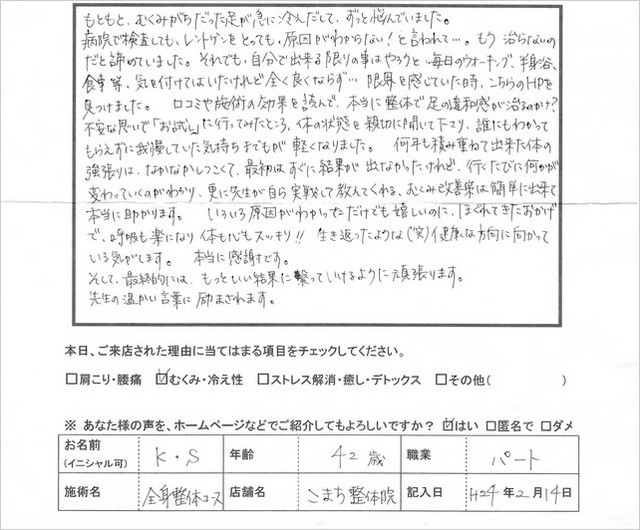 もともと、むくみがちだった足が急に冷んだして、ずっと悩んでいました。
病院で検査しても、レントゲンをとっても、原因がわからない!と言われて…。もう治らないの
だと諦めていました。それでも、自分で出来る限りの事はやろうと、毎日のウォーキング、半身浴、
食事等、気を付けてはいたけれど全く良くならず…限界を感じていた時、こちらのHPを
見つけました。口コミや施術の効果を読んで、本当に整体で足の違和感が治るのかけ?
不安な思いで「お試し」に行ってみたところ、体の状態を親切に聞いて下さり、誰にもわかって
もらえずに我慢していた気持ちまでもが軽くなりました。何年も積み重ねて出来た体の
強張りは、なかなかしつこくて、最初はすぐに結果が出なかったけれど、行くたびに何かが
変わっていくのがわかり、更に先生が自ら実戦して教えてくれる、むくみ改善策は簡単に出来て
本当に助かります。いろいろ原因がわかっただけでも嬉しいのに、ほぐれてきたおかげ
で、呼吸も楽になり体も心もスッキリ!!生き返ったような(笑)健康な方向に向かって
いる気がします。本当に感謝です。
そして、最終的には、もっといい結果に繋っていけるように頑張ります。
先生の温かい言葉に励まされます。
本日、ご来店された理由に当てはまる項目をチェックしてください。
□肩こり・腰痛 ☑むくみ・冷え性 □ストレス解消・癒し・デトックス □その他( )
※ あなた様の声を、ホームページなどでご紹介してもよろしいですか? ☑はい □匿名で □ダメ
お名前(イニシャル可) K・S 年齢 42歳 職業 パート
施術名 全身整体コース 店舗名 こまち整体院 記入日 H24年2月14日